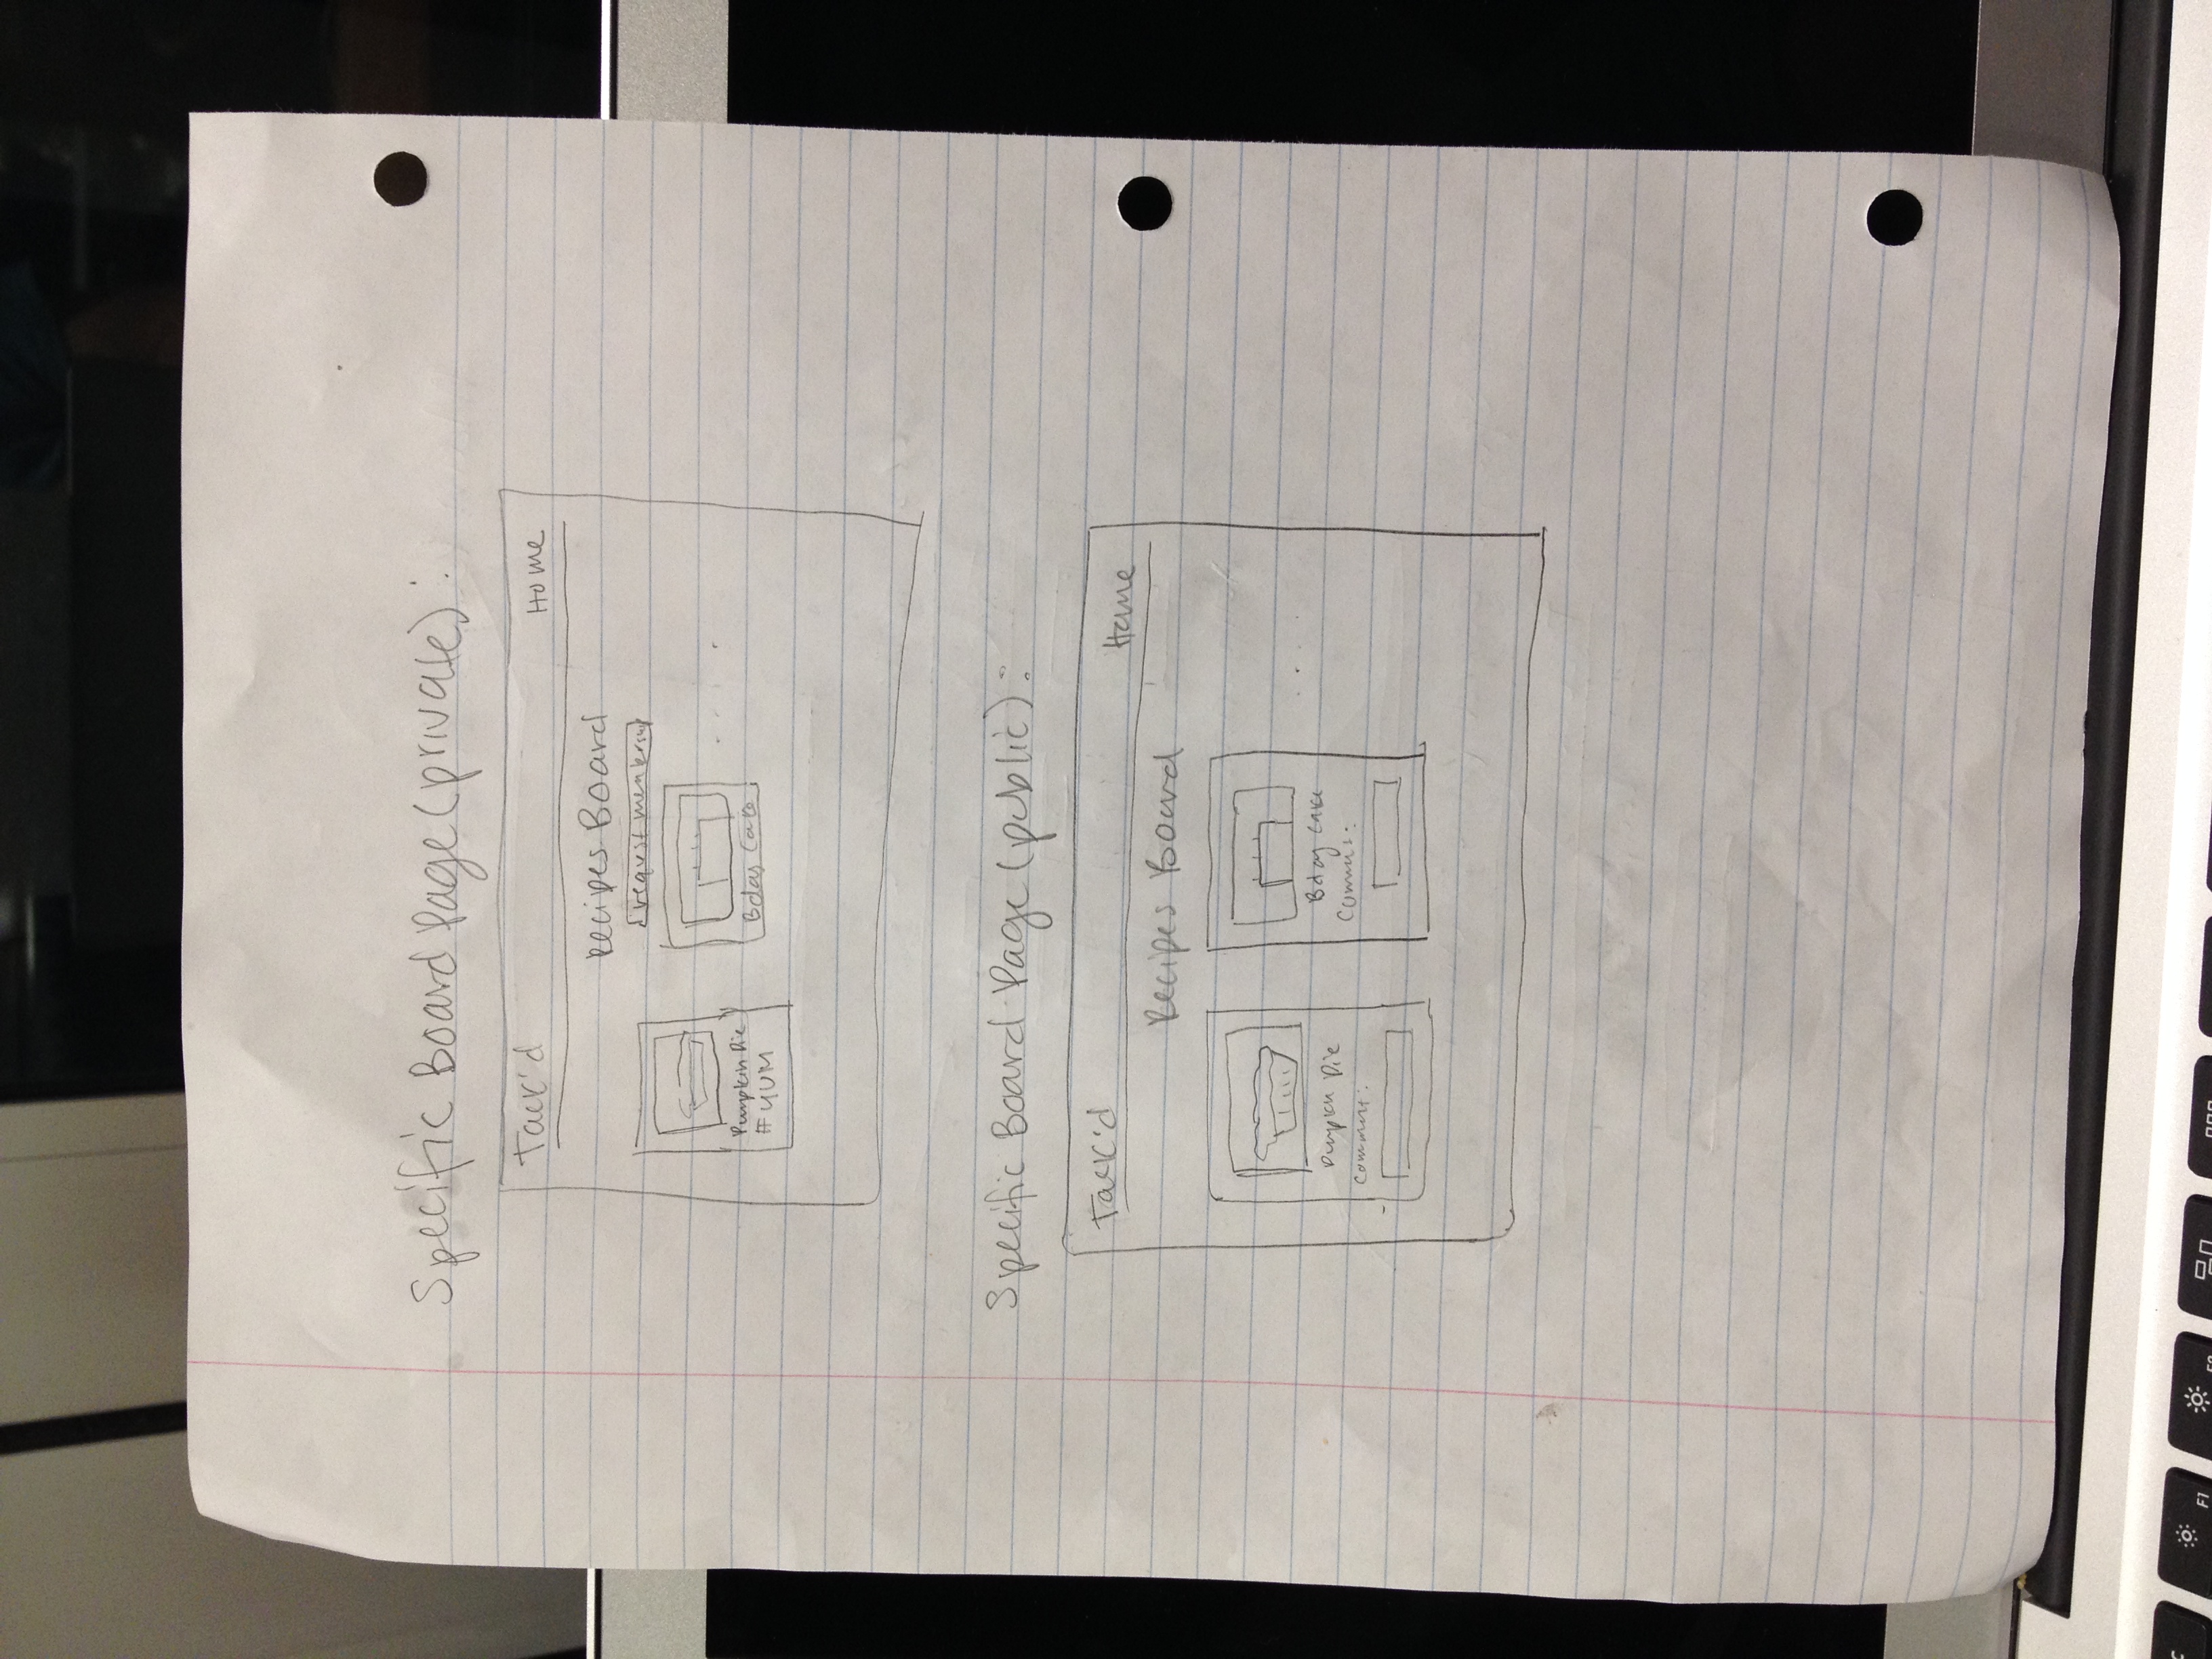 Specific Board Page (private):
Tack'd Home
Recipes Board
request membership
Pumpkin Pie
#YUM
Bday Cake
. . . . .
Specific Board Page (public):
Tack'd Home
Recipes Board
Pumpkin Pie
Comment:
Bday Cake
Comment:
. . . . .
F1
F2